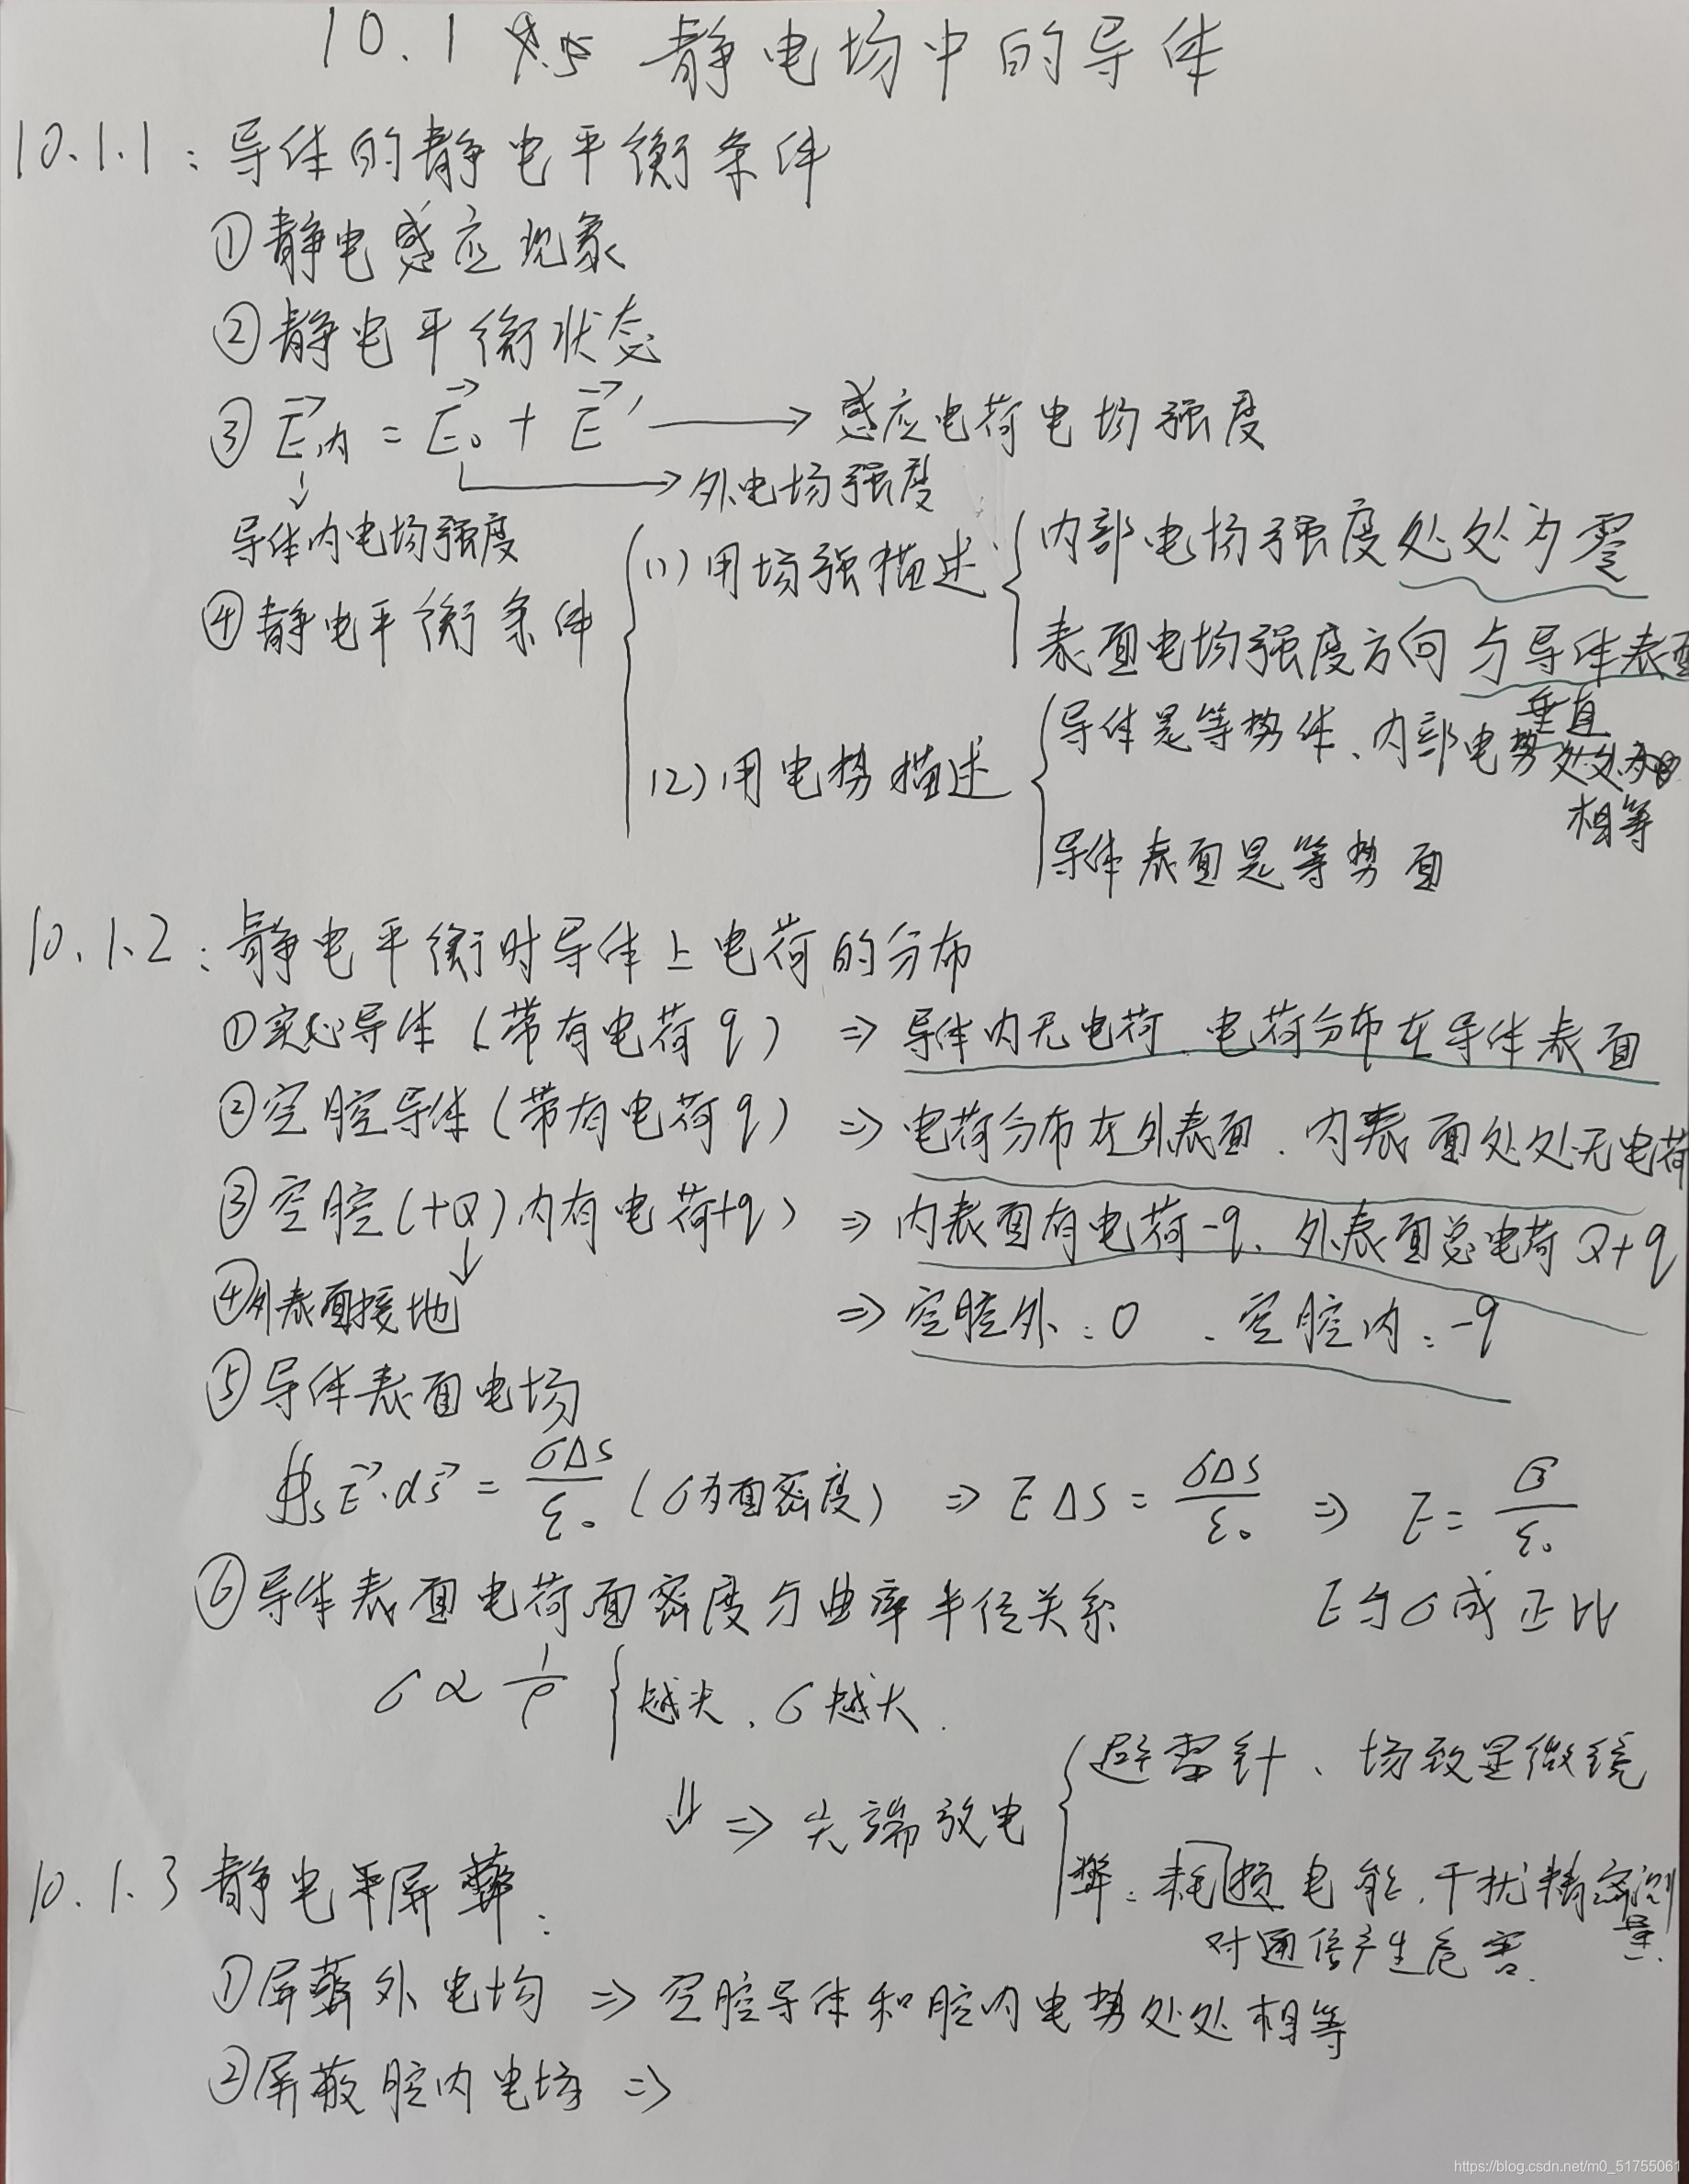 10.1 静电场中的导体
10.1.1：导体的静电平衡条件
①静电感应现象
②静电平衡状态
③ E⃗内 = E⃗₀ + E⃗′ → 感应电荷电场强度
→外电场强度
↓
导体内电场强度
④静电平衡条件
(1)用场强描述
内部电场强度处处为零
表面电场强度方向与导体表面
垂直
(2)用电势描述
导体是等势体、内部电势处处
相等
导体表面是等势面
10.1.2：静电平衡时导体上电荷的分布
①实心导体（带有电荷q） ⇒ 导体内无电荷、电荷分布在导体表面
②空腔导体（带有电荷q） ⇒ 电荷分布在外表面、内表面处处无电荷
③空腔(+Q)内有电荷+q） ⇒ 内表面有电荷-q、外表面总电荷Q+q
↓
④外表面接地 ⇒ 空腔外：0 、空腔内：-q
⑤导体表面电场
∯ₛ E⃗·dS⃗ = σΔS/ε₀ （σ为面密度） ⇒ EΔS = σΔS/ε₀ ⇒ E = σ/ε₀
⑥导体表面电荷面密度与曲率半径关系 E与σ成正比
σ ∝ 1/ρ { 越尖、σ越大.
⇓ ⇒ 尖端放电
避雷针、场致显微镜
弊：耗损电能，干扰精密测
量.
对通信产生危害.
10.1.3 静电屏蔽：
①屏蔽外电场 ⇒ 空腔导体和腔内电势处处相等
②屏蔽腔内电场 ⇒
https://blog.csdn.net/m0_51755061